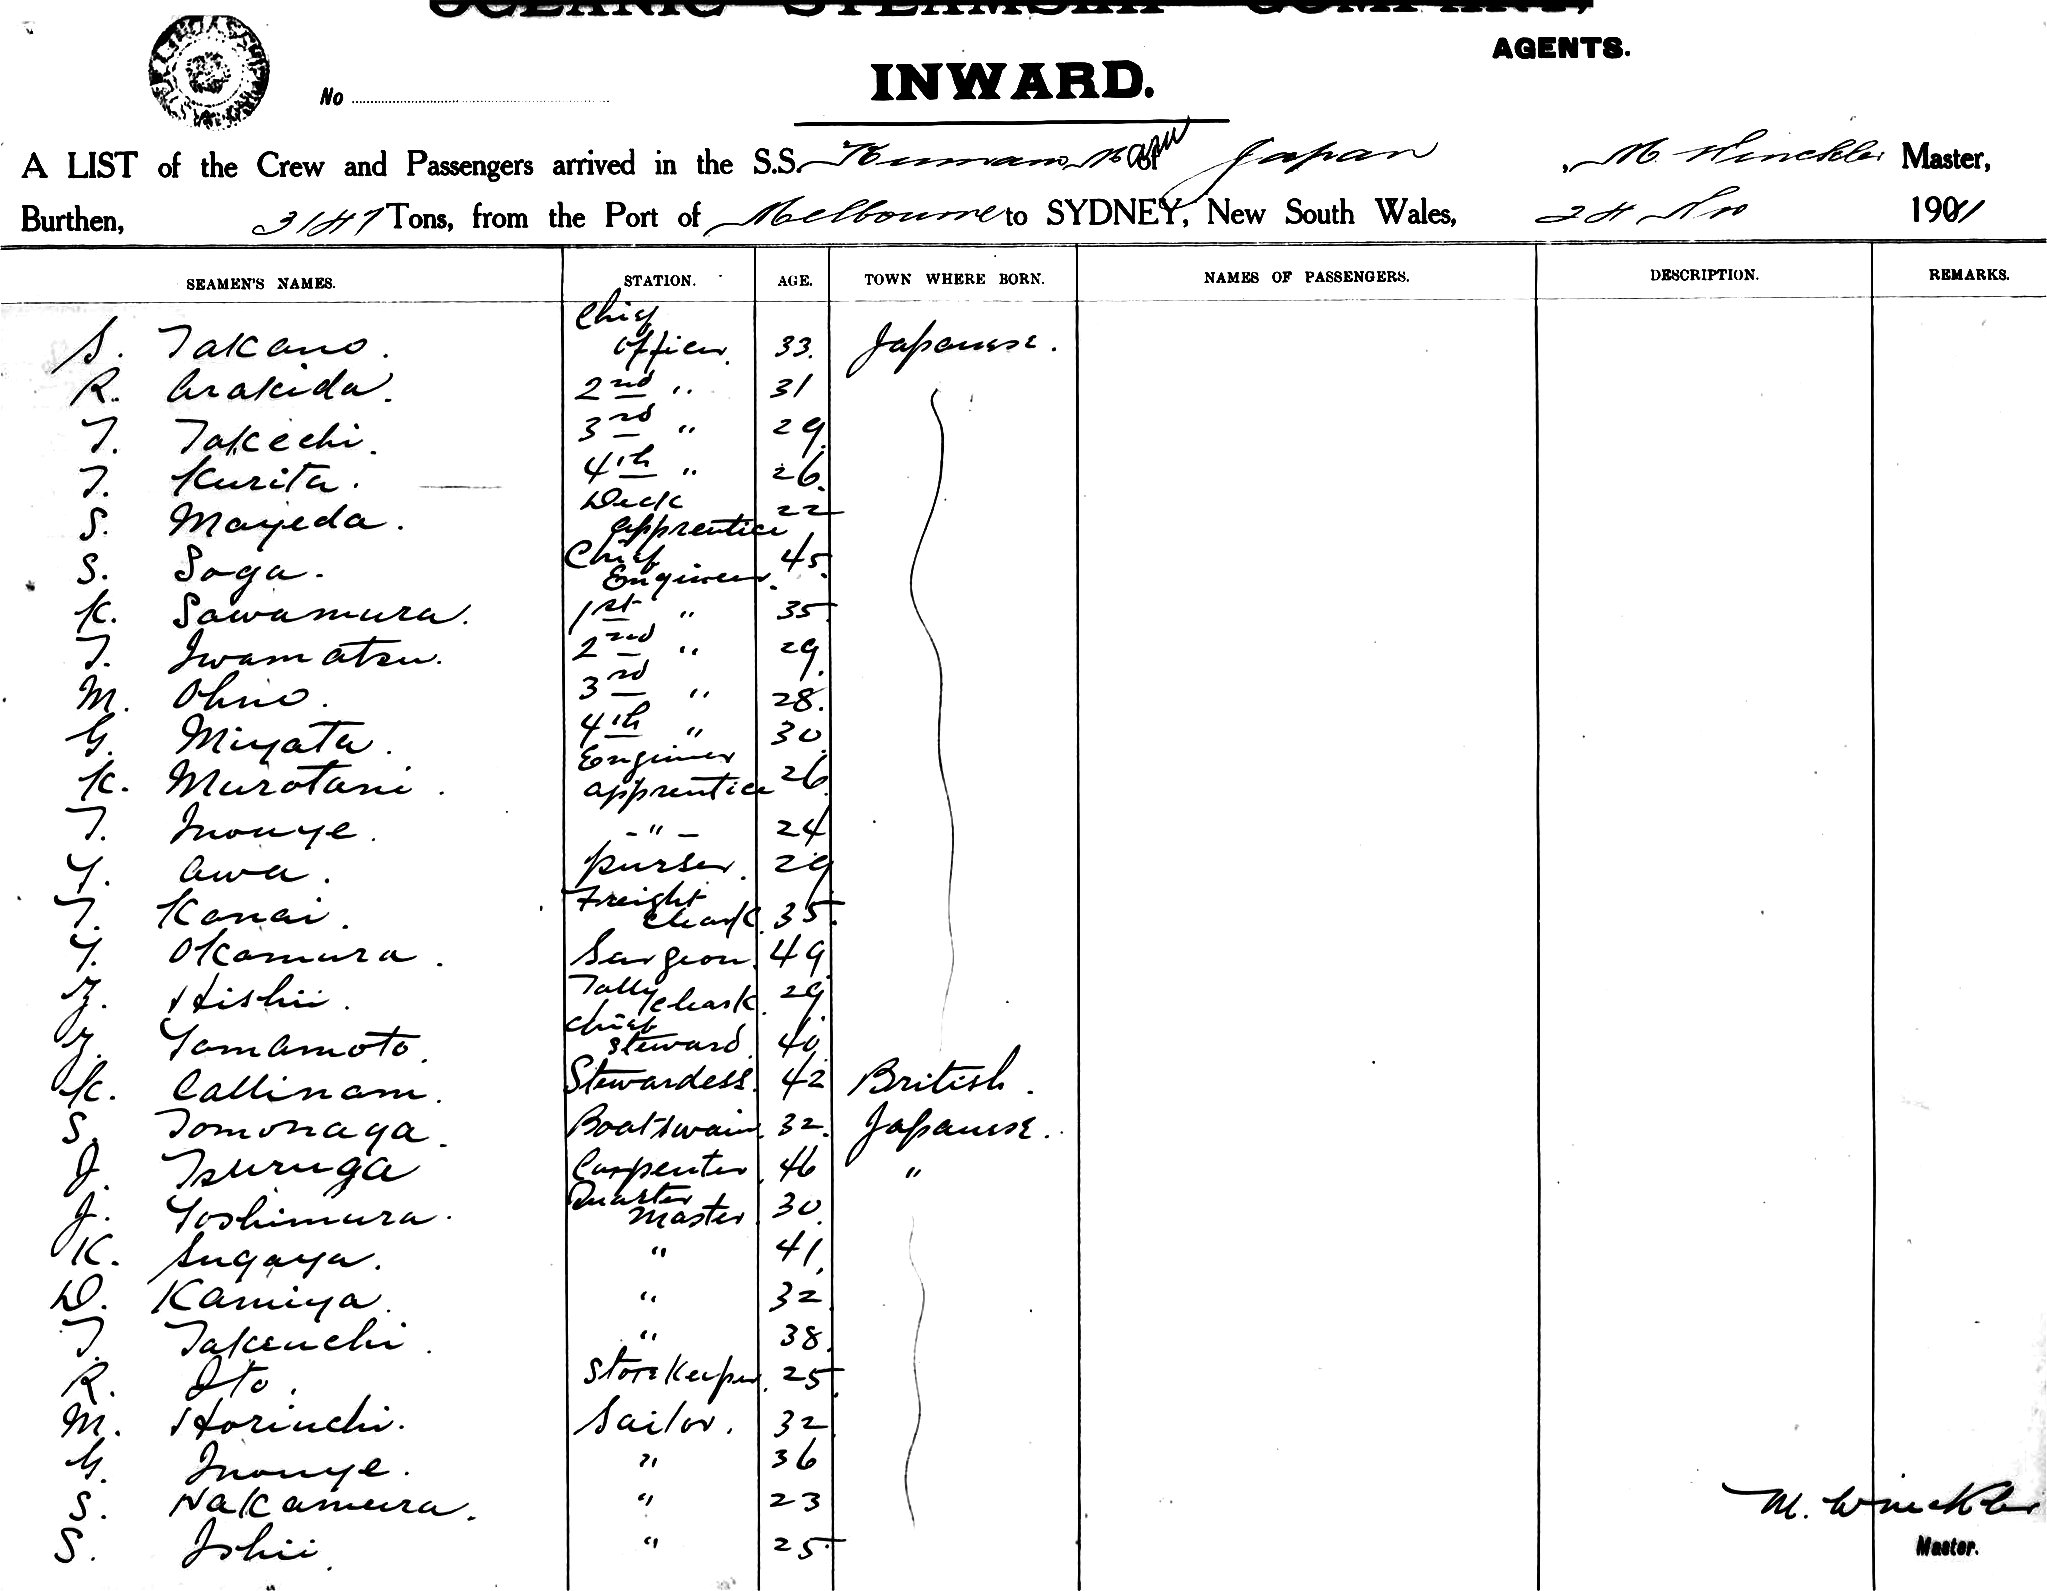 OCEANIC STEAMSHIP COMPANY,
AGENTS.
No
INWARD.
A LIST of the Crew and Passengers arrived in the S.S. Kumano Maru Japan , M. Winckler Master,
Burthen, 3147 Tons, from the Port of Melbourne to SYDNEY, New South Wales, 24 Nov 1901
SEAMEN'S NAMES. STATION. AGE. TOWN WHERE BORN. NAMES OF PASSENGERS. DESCRIPTION. REMARKS.
S. Takano. Chief Officer. 33. Japanese.
R. Arakida. 2nd " 31
T. Takechi. 3rd " 29.
T. Kurita. 4th " 26.
S. Mayeda. Deck apprentice 22
S. Soga. Chief Engineer. 45.
K. Sawamura. 1st " 35
T. Iwamatsu. 2nd " 29.
M. Ohno. 3rd " 28.
G. Miyata. 4th " 30
K. Murotani. Engineer apprentice 26.
T. Inouye. - " - 24
Y. Awa. purser. 29
T. Kanai. Freight Clerk. 35.
Y. Okamura. Surgeon. 49
Z. Hishii. Tally Clerk. 29.
Z. Yamamoto. Chief Steward. 40.
K. Callinam. Stewardess. 42 British.
S. Tomonaga. Boatswain. 32. Japanese.
J. Tsuruga Carpenter. 46 "
J. Yoshimura. Quarter Master. 30.
K. Sugaya. " 41.
D. Kamiya. " 32
T. Takeuchi. " 38.
R. Ito. Store Keeper. 25.
M. Horiuchi. Sailor. 32
G. Inouye. " 36
S. Nakamura. " 23
S. Ishii. " 25.
M. Winckler
Master.